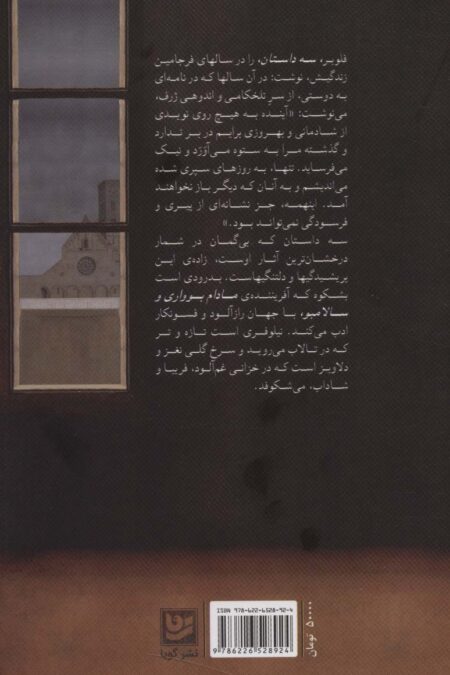 فلوبر، سه داستان، را در سالهای فرجامین
زندگیش، نوشت: در آن سالها که در نامه‌ای
به دوستی، از سر تلخکامی و اندوهی ژرف،
می‌نوشت: «آینده به هیچ روی نویدی
از شادمانی و بهروزی برایم در بر ندارد
و گذشته مرا به ستوه می‌آوَرَد و نیک
می‌فرساید. تنها، به روزهای سپری شده
می‌اندیشم و به آنان که دیگر باز نخواهند
آمد. اینهمه، جز نشانه‌ای از پیری و
فرسودگی نمی‌تواند بود.»
سه داستان که بی‌گمان در شمار
درخشان‌ترین آثار اوست، زاده‌ی این
پریشیدگیها و دلتنگیهاست. بدرودی است
بشکوه که آفریننده‌ی مادام بوواری و
سالامبو، با جهان رازآلود و فسونکار
ادب می‌کند. نیلوفری است تازه و تر
که در تالاب می‌روید و سرخ گلی نغز و
دلاویز است که در خزانی غم‌آلود، فریبا و
شاداب، می‌شکوفد.
ISBN 978-622-6528-92-4
9 786226 528924
۵۰۰۰۰ تومان
نشر گویا